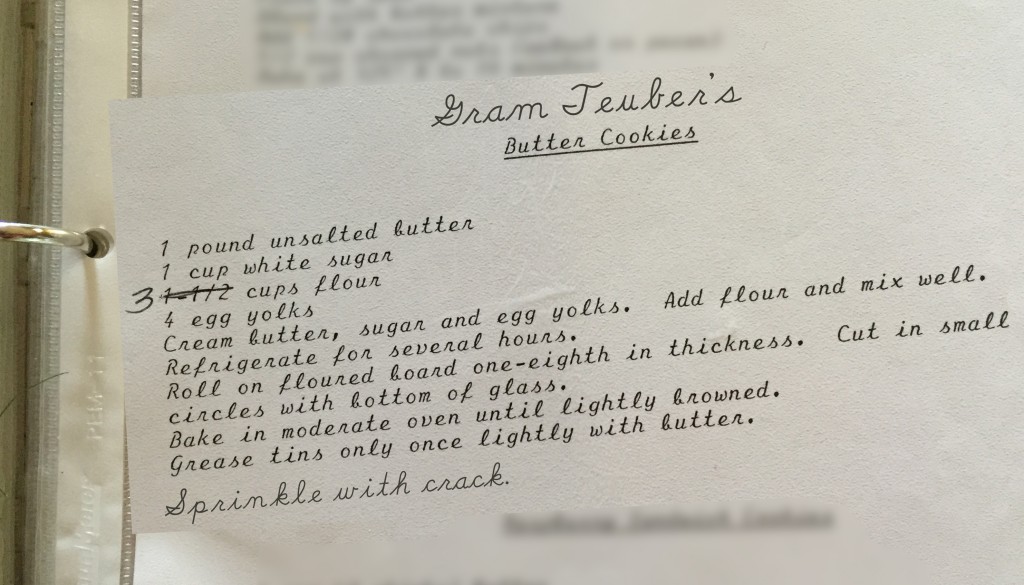 Gram Teuber's
Butter Cookies
1 pound unsalted butter
1 cup white sugar
3 1-1/2 cups flour
4 egg yolks
Cream butter, sugar and egg yolks. Add flour and mix well.
Refrigerate for several hours.
Roll on floured board one-eighth in thickness. Cut in small
circles with bottom of glass.
Bake in moderate oven until lightly browned.
Grease tins only once lightly with butter.
Sprinkle with crack.